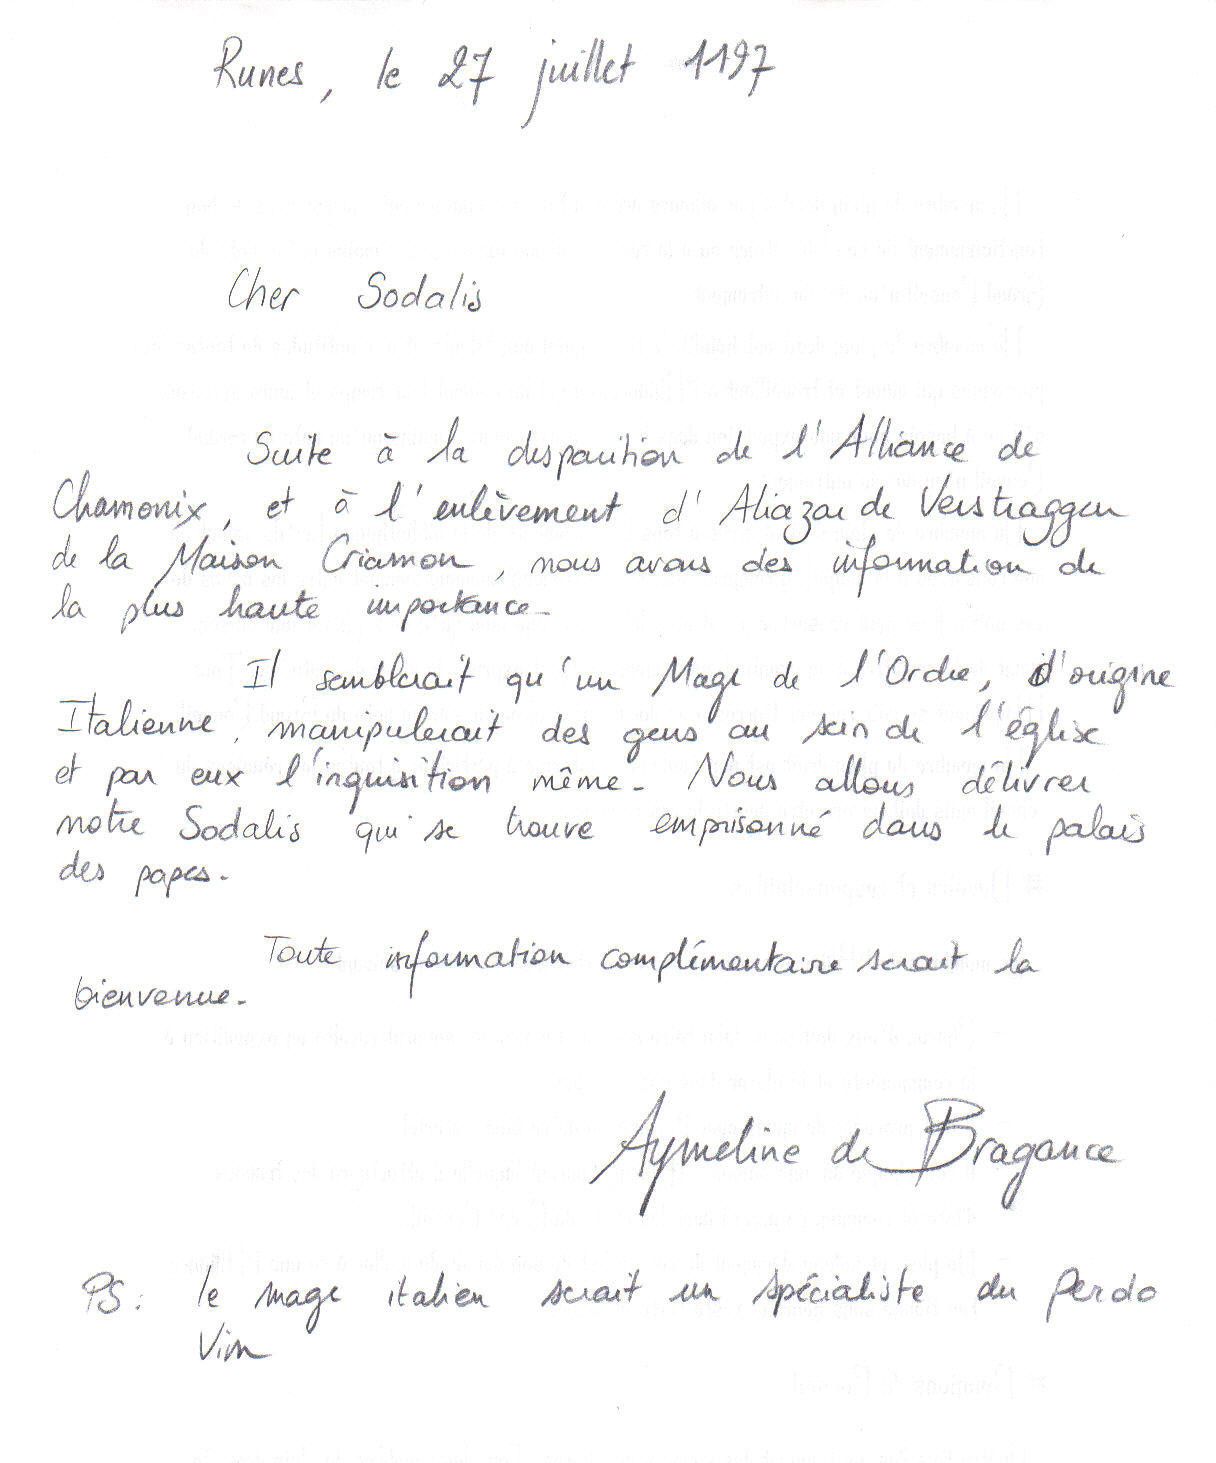 Runes, le 27 juillet 1197
Cher Sodalis
Suite à la disparition de l'Alliance de
Chamonix, et à l'enlèvement d'Aliazar de Verstraggen
de la Maison Criamon, nous avons des information de
la plus haute importance.
Il semblerait qu'un Mage de l'Ordre, d'origine
Italienne, manipulerait des gens au sein de l'église
et par eux l'inquisition même. Nous allons délivrer
notre Sodalis qui se trouve emprisonné dans le palais
des papes.
Toute information complémentaire serait la
bienvenue.
Aymeline de Bragance
PS: le mage italien serait un spécialiste du Perdo
Vim